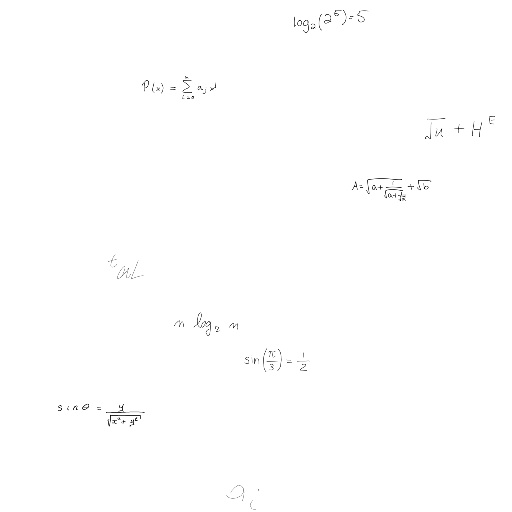 log₂(2⁵)=5
P(x) = ∑_{i=0}^{n} aᵢ xⁱ
√u + H^E
A=√(a+1/√(a+1/√a)) + √b
ᵗaL
n log₂ n
sin(π/3) = 1/2
sin θ = y/√(x²+y²)
aᵢ